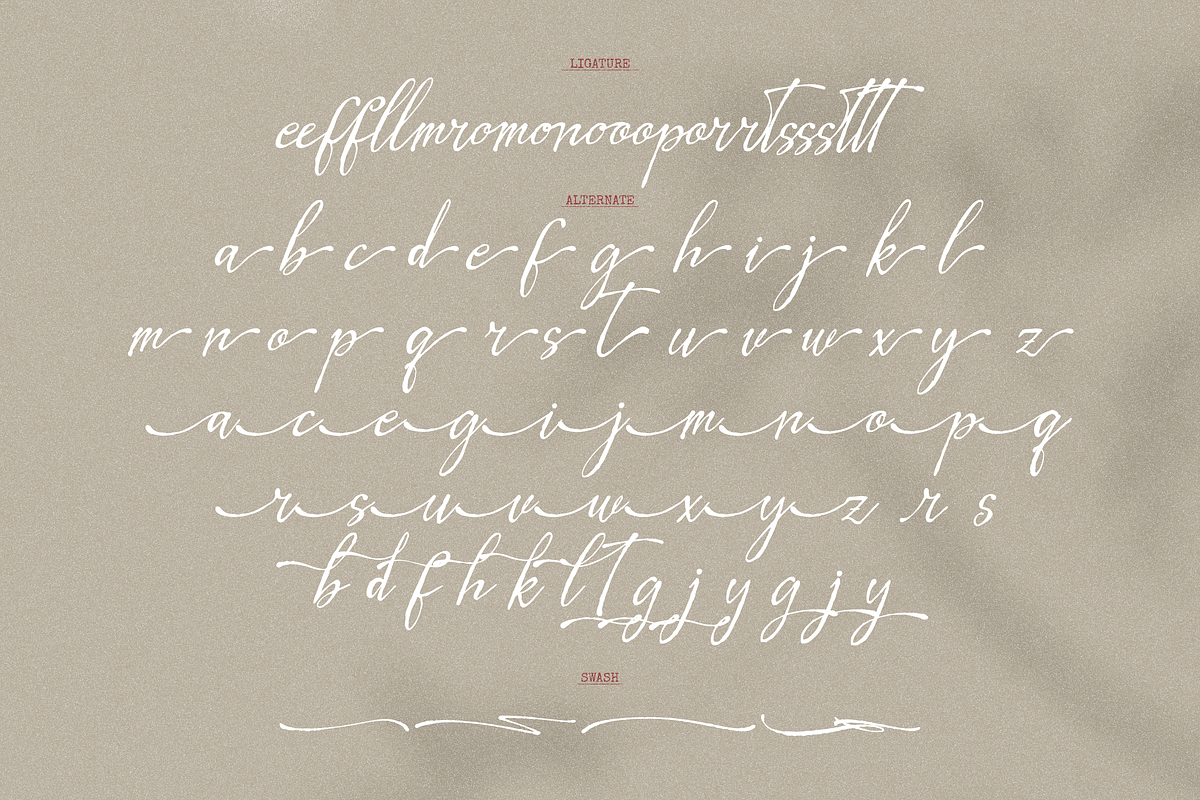 LIGATURE
eeffllmromonoooporrrtssstttt
ALTERNATE
a b c d e f g h i j k l
m n o p q r s t u v w x y z
a c e g i j m n o p q
r s u v w x y z r s
b d f h k l t g j y g j y
SWASH